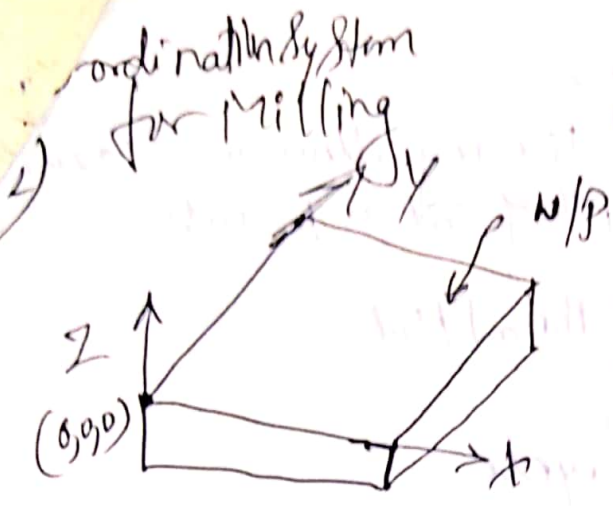 ordination System
for Milling
2)
Y
W/P.
Z
(0,0,0)
X